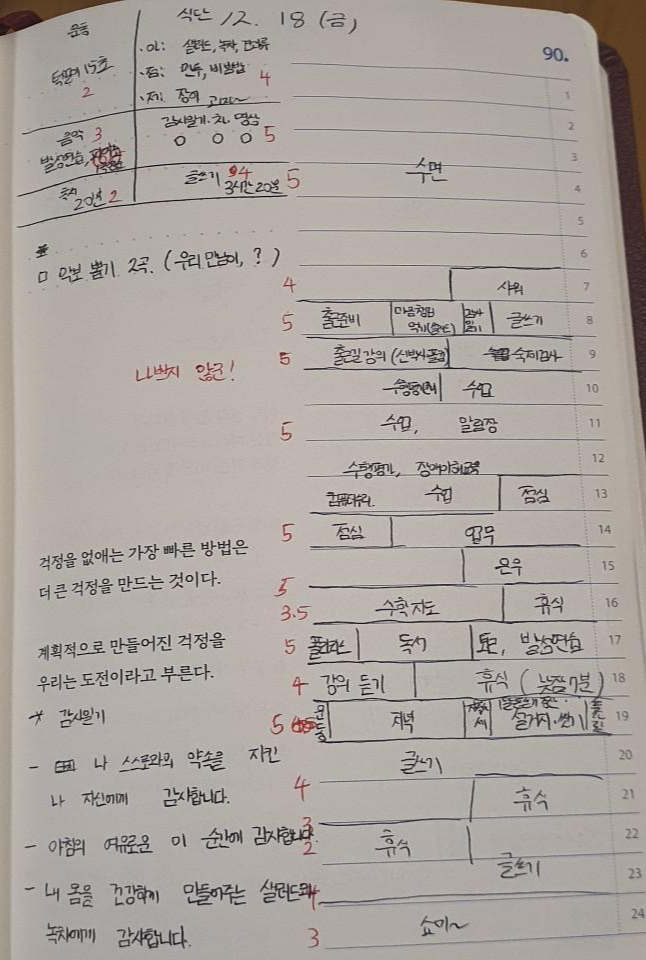 운동
식단 12. 18 (금)
90.
턱걸이 15초
2
·아: 샐러드, 녹차, 견과류
·점: 만두, 비빔밥
4
·저: 장어
음악 3
발성연습,
감사일기·차·명상
O O O 5
독서
20분 2
글쓰기 4
3시간 20분
1
2
3
5 수면 4
5
6
□ 악보 뽑기 2곡. (우리 만남이, ?)
4 샤워 7
5 출근준비 감사일기 글쓰기 8
나쁘지 않군!
5 출근길 강의 숙제검사 9
수업 10
5 수업, 알림장 11
수행평가, 장애이해교육 12
수업 점심 13
5 점심 업무 14
걱정을 없애는 가장 빠른 방법은
더 큰 걱정을 만드는 것이다.
5 은우 15
3.5 수학지도 휴식 16
계획적으로 만들어진 걱정을
우리는 도전이라고 부른다.
5 독서 발성연습 17
4 강의 듣기 휴식 (낮잠 7분) 18
* 감사일기
5 운동 저녁 설거지·씻기 19
- 나 스스로와의 약속을 지킨
나 자신에게 감사합니다.
글쓰기 20
4 휴식 21
- 아침의 여유로운 이 순간에 감사합니다.
3
2 휴식 22
글쓰기 23
- 내 몸을 건강하게 만들어주는 샐러드와
녹차에게 감사합니다.
4
3 쇼미~ 24